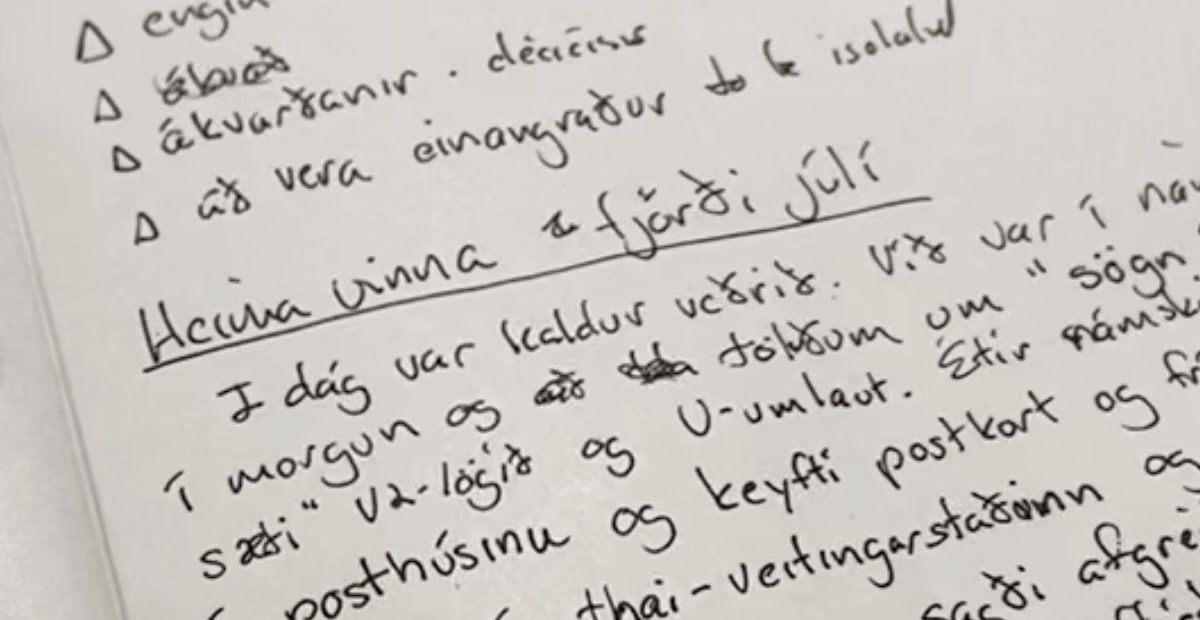 Δ engin
Δ
Δ ákvarðanir. déciĉisus
Δ að vera einangraður to be isolalud
Heima vinna fjórði júlí
I dág var kaldur veðrið. Við var í nám
í morgun og töluðum um "sögn
sæti" V2-lögið og U-umlaut. Êtir námsk
posthúsinu og keyfti postkort og frí
í thai-veitingarstaðinn og
sagði afgrei